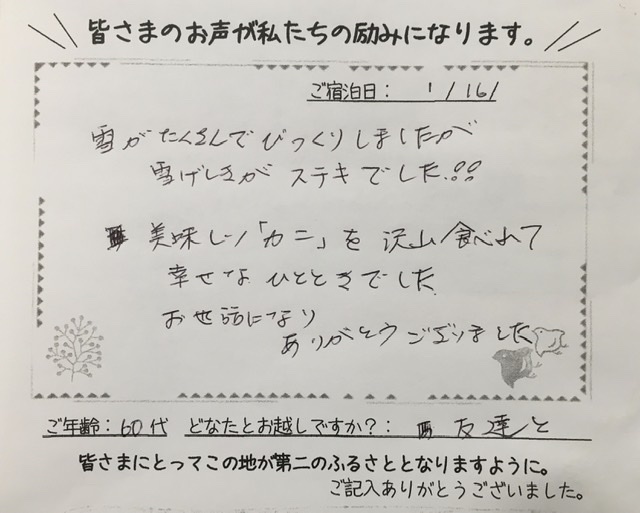 皆さまのお声が私たちの励みになります。
ご宿泊日： 1/16/
雪がたくさんでびっくりしましたが
雪げしきが ステキでした!!
美味しい「カニ」を 沢山食べれて
幸せな ひとときでした
お世話になり
ありがとうございました
ご年齢：60代 どなたとお越しですか？： 友達と
皆さまにとってこの地が第二のふるさととなりますように。
ご記入ありがとうございました。